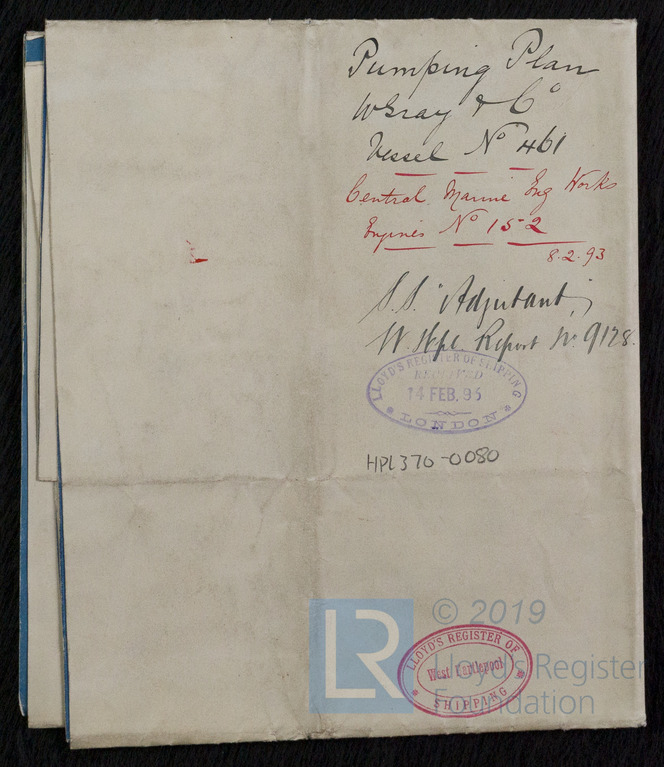 Pumping Plan
W Gray & Co
Vessel No 461
Central Marine Eng Works
Engines No 152
8.2.93
S.S. "Adjutant"
W. Hpl. Report No 9128.
LLOYD'S REGISTER OF SHIPPING
RECEIVED
14 FEB. 95
LONDON
HPL370-0080
LR
© 2019
Lloyd's Register
Foundation
LLOYD'S REGISTER OF
West Hartlepool
SHIPPING